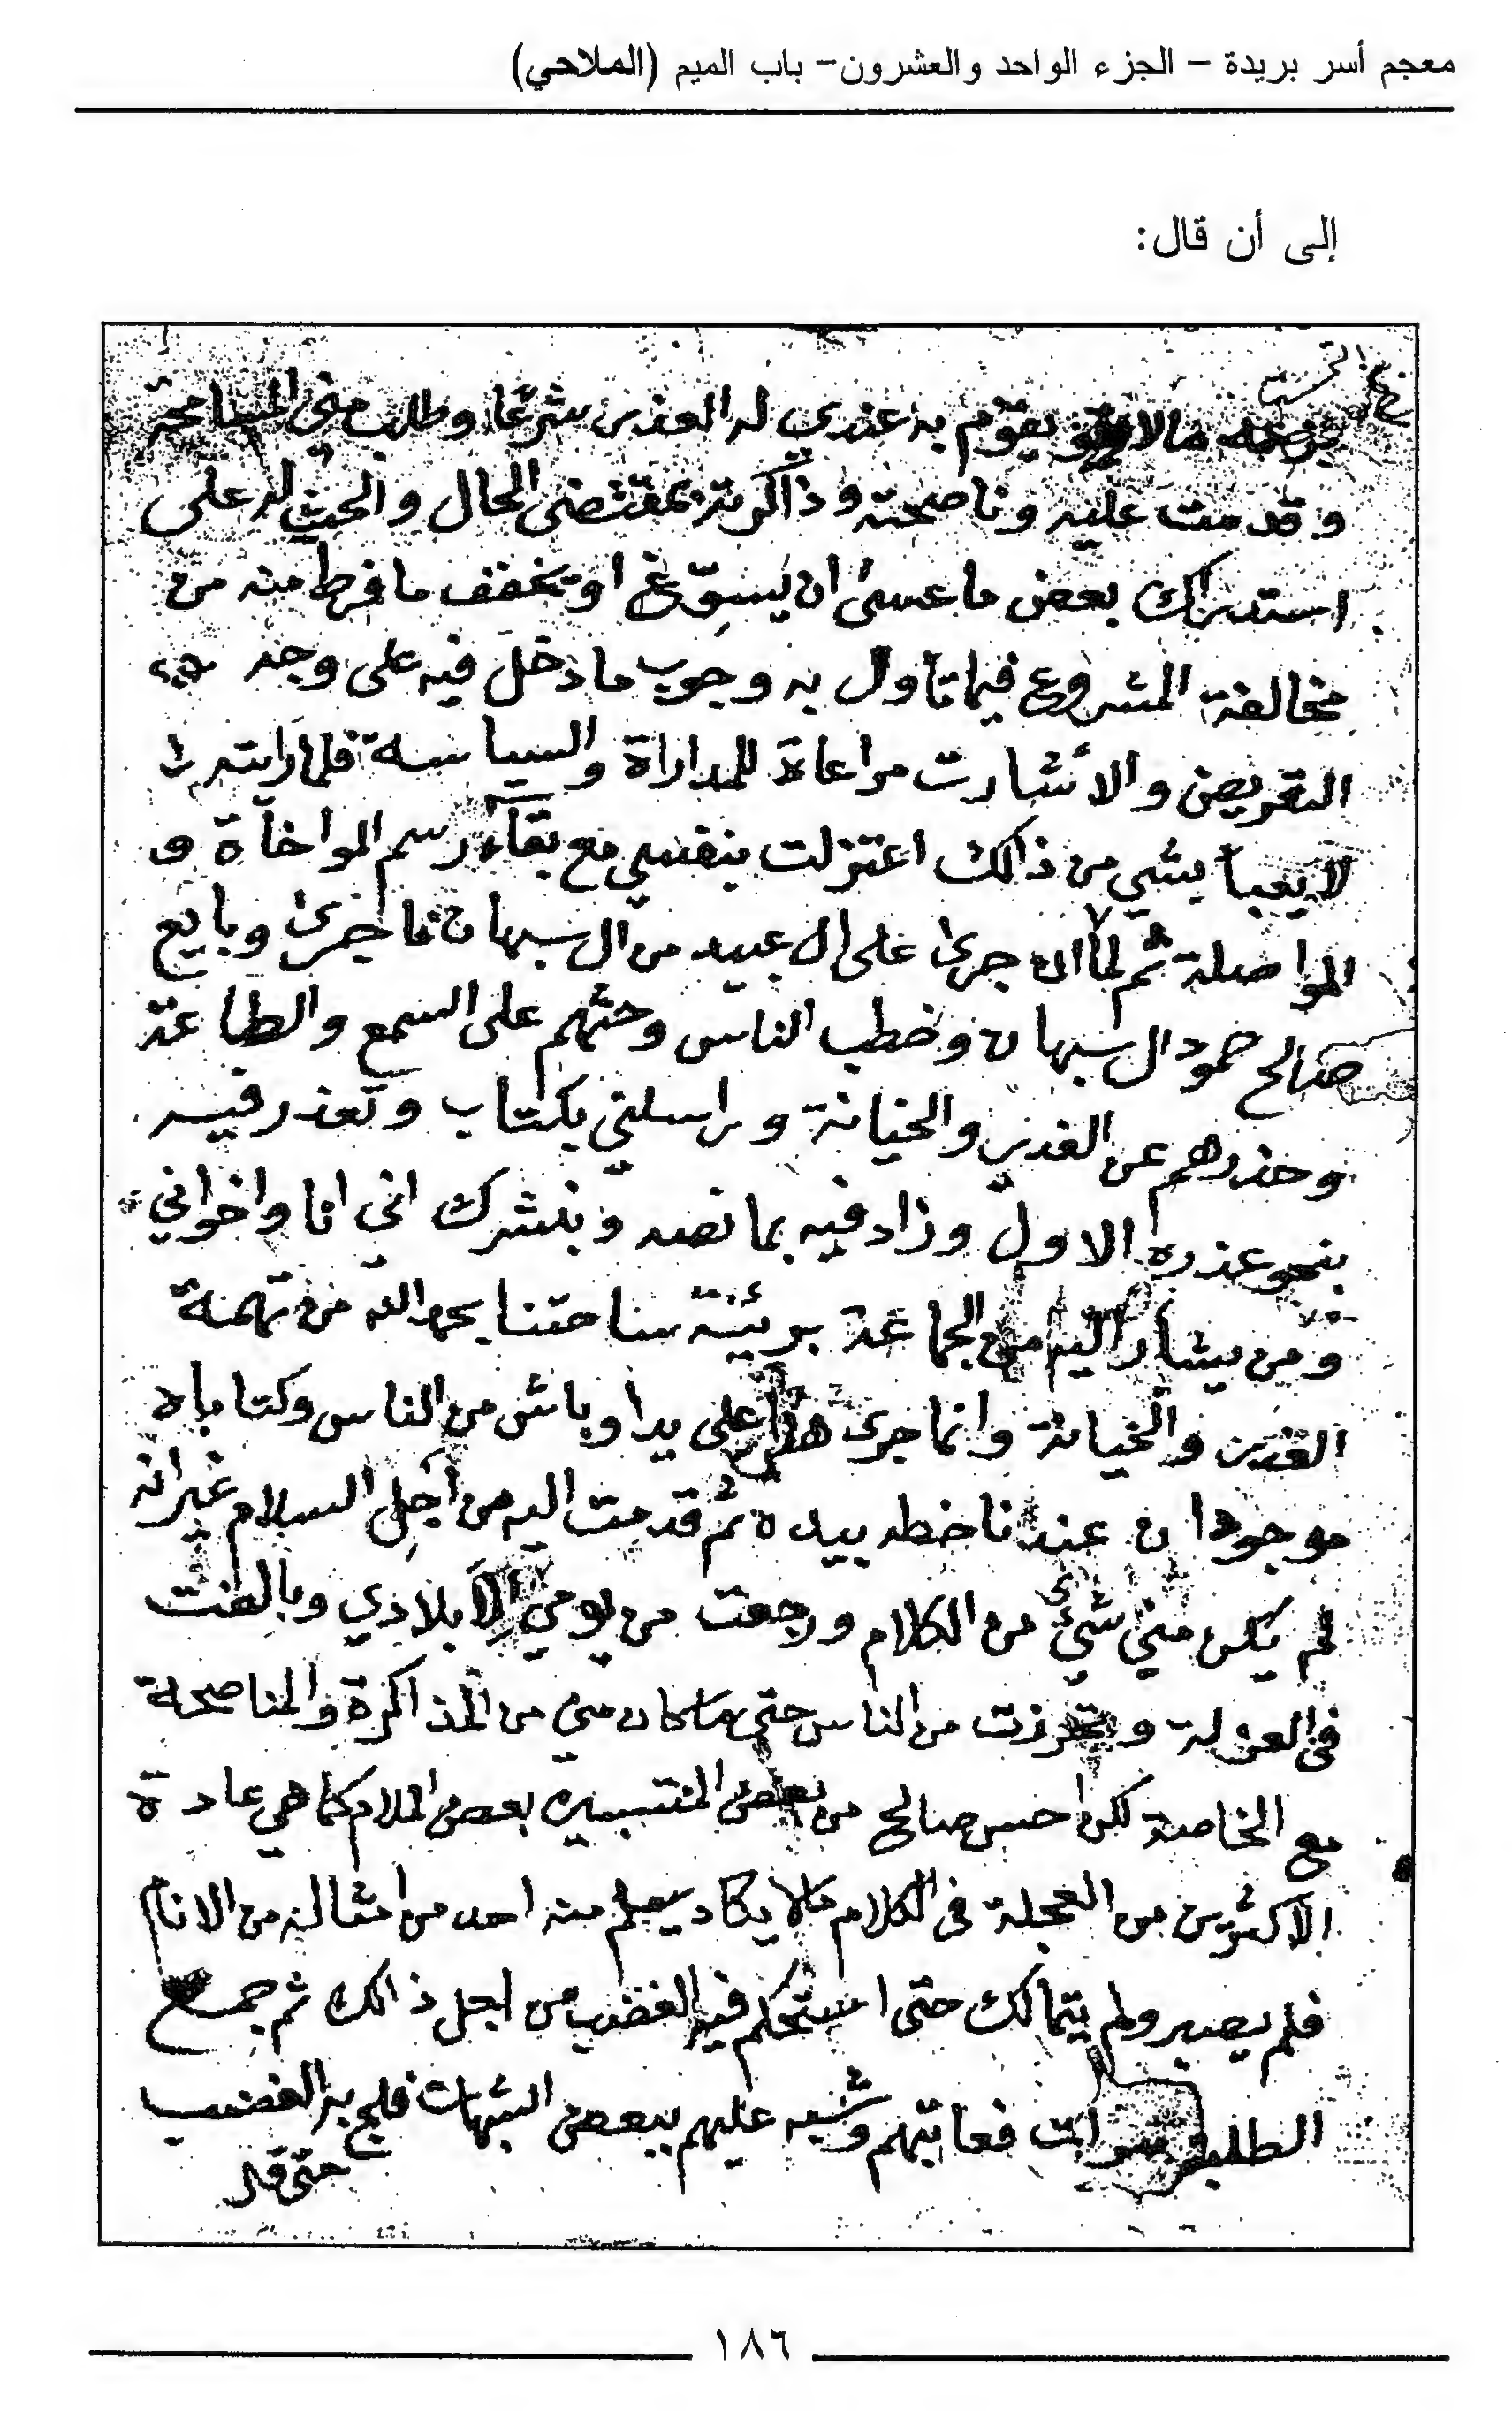 معجم أسر بريدة – الجزء الواحد والعشرون– باب الميم (الملاحي)
إلى أن قال:
مالا يقوم به عندي له العذر شرعًا وطلب مني المسامحة
وقدمت عليه وناصحته وذاكرته بمقتضى الحال والحث له على
استدراك بعض ما عسىٰ ان يسوّغ او يخفف ما فرط منه من
مخالفة المشروع فيما تأول به وجوب ما دخل فيه على وجه
التعريض والاشارت مراعاة للمداراة والسياسة فلما رايته
لا يعبأ بشي من ذالك اعتزلت بنفسي مع بقآء رسم المواخآة و
المواصلة ثم لما ان جرىٰ على ال عبيد من ال سبهان ما جرىٰ وبايع
صالح حمود ال سبهان وخطب الناس وحثهم على السمع والطاعة
وحذرهم عن الغدر والخيانة وراسلني بكتاب وتعذر فيه
بنحو عذره الاول وزاد فيه بما نصه ونبشرك اني انا واخواني
ومن يشار اليه من الجماعة بريئة ساحتنا بحمد الله من تهمة
الغدر والخيانة وانما جرى هذا على يد اوباش من الناس وكتاباه
موجودان عندنا خطه بيده ثم قدمت اليه من أجل السلام غير انه
لم يكن مني شيئ من الكلام ورجعت من يومي الى بلادي وبالغت
في العزلة وتحرزت من الناس حتى ما كان مني من المذاكرة والمناصحة
مع الخاصة لكن احس صالح من بعض المنتسبين بعض الملام كما هي عادة
الاكثرين من العجلة في الكلام مالا يكاد يسلم منه احد من امثاله من الانام
فلم يصبر ولم يتمالك حتى استحكم فيه الغضب من اجل ذالك ثم جمع
الطلبة فعاتبهم وشبه عليهم ببعض الشبهات فلج به الغضب
حتى قد
١٨٦